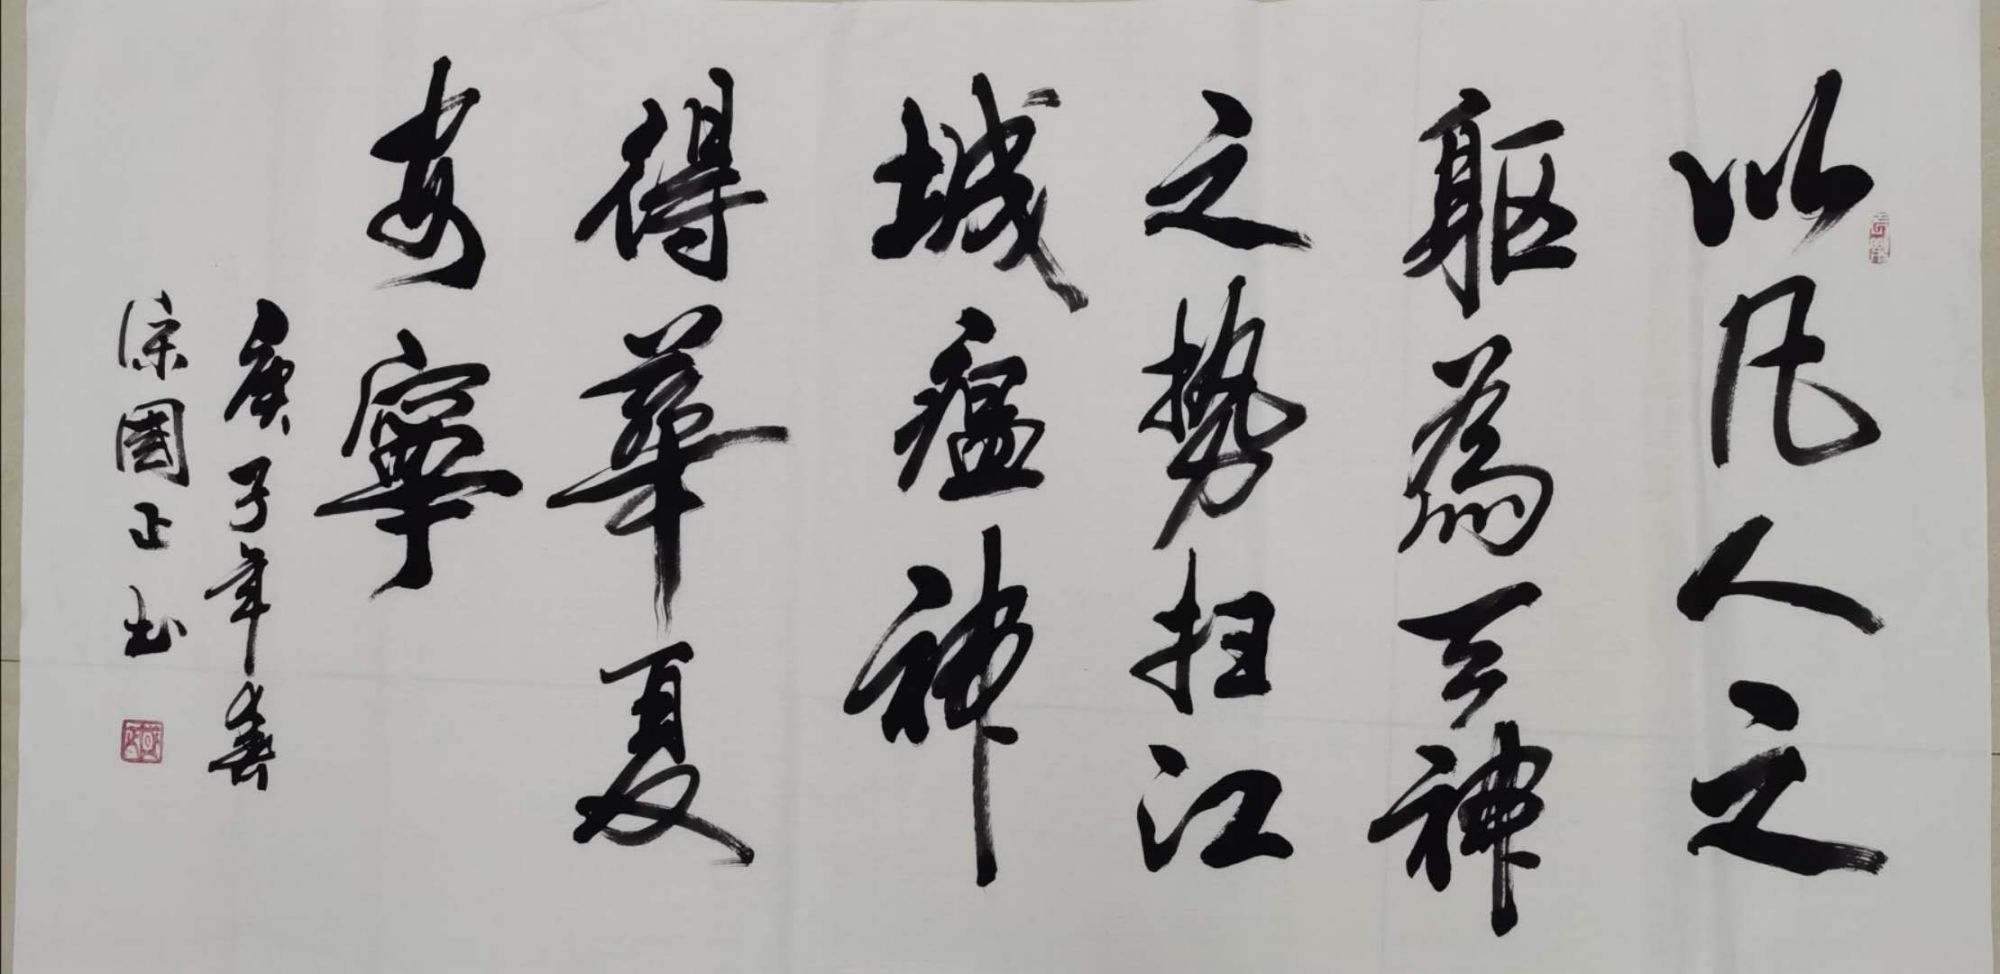 以凡人之
躯為天神
之势扫江
城瘟神
得華夏
安寧
庚子年春
宗國正书